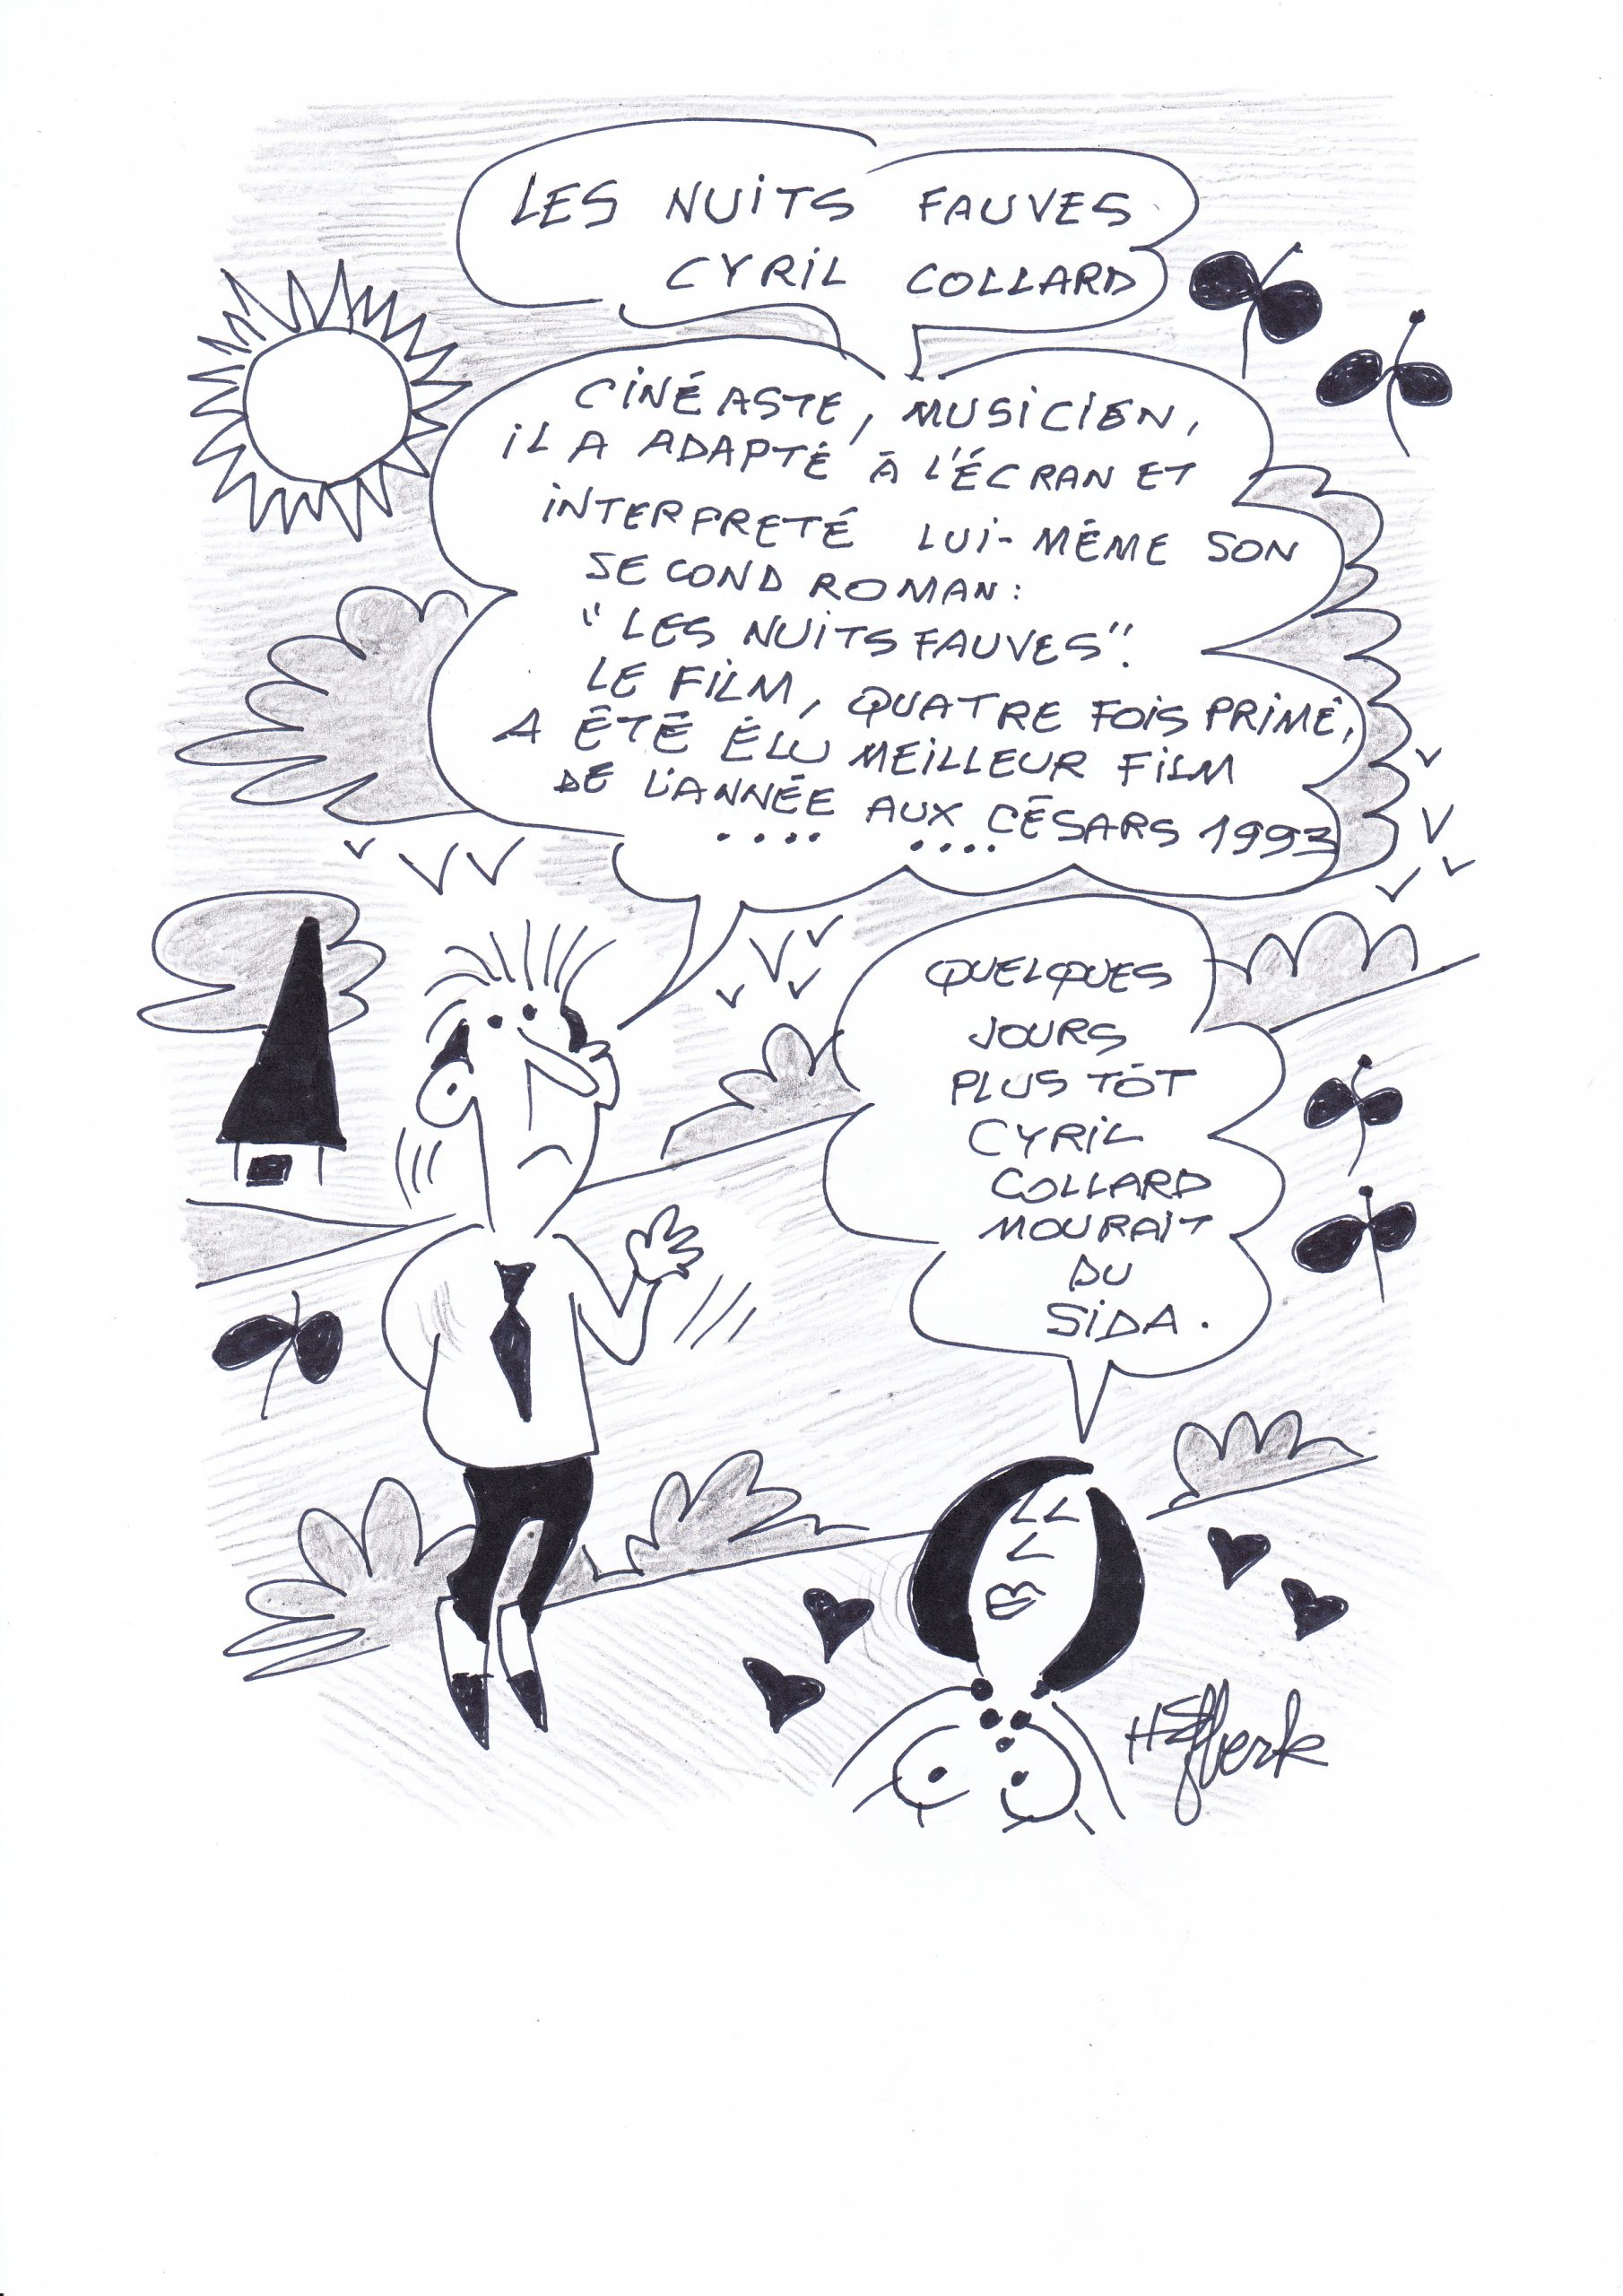 LES NUITS FAUVES
CYRIL COLLARD
CINÉASTE, MUSICIEN,
IL A ADAPTÉ À L'ÉCRAN ET
INTERPRETÉ LUI-MÊME SON
SECOND ROMAN:
"LES NUITS FAUVES".
LE FILM, QUATRE FOIS PRIMÉ,
A ÉTÉ ÉLU MEILLEUR FILM
DE L'ANNÉE AUX CÉSARS 1993
.... ....
QUELQUES
JOURS
PLUS TÔT
CYRIL
COLLARD
MOURAIT
DU
SIDA.